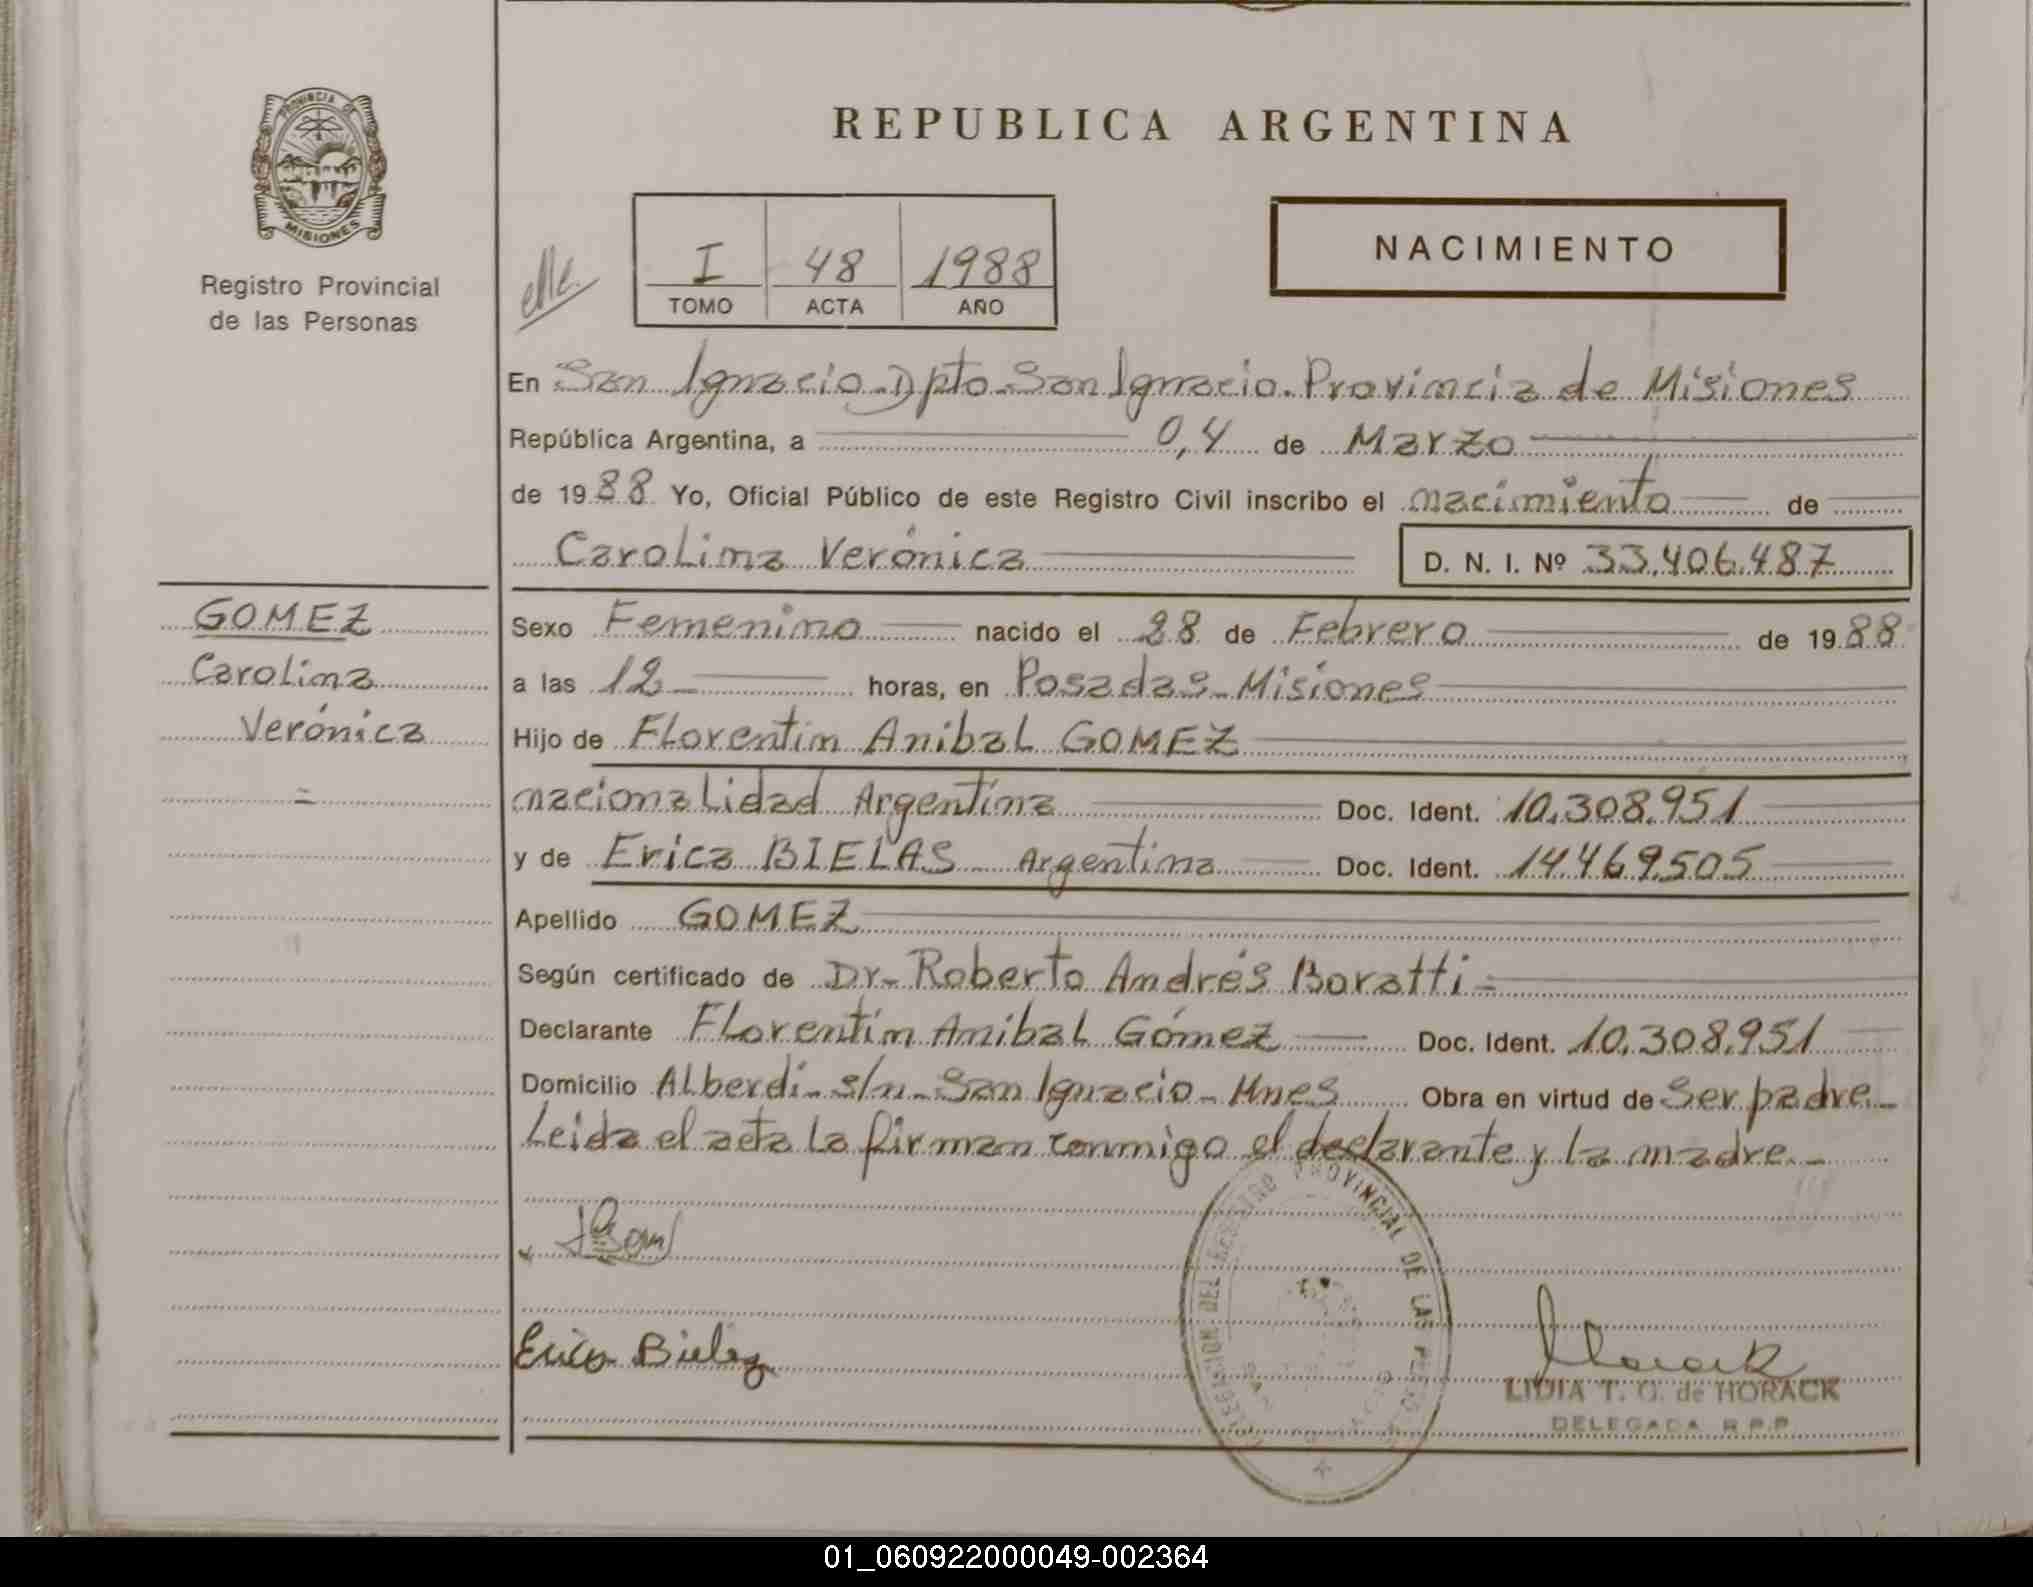 PROVINCIA DE
MISIONES
Registro Provincial
de las Personas
REPUBLICA ARGENTINA
I 48 1988
TOMO ACTA AÑO
NACIMIENTO
En San Ignacio Dpto San Ignacio. Provincia de Misiones
República Argentina, a 0,4 de Marzo
de 1988 Yo, Oficial Público de este Registro Civil inscribo el nacimiento de
Carolina Verónica D. N. I. Nº 33.406.487
GOMEZ
Carolina
Verónica
=
Sexo Femenino nacido el 28 de Febrero de 1988
a las 12 horas, en Posadas - Misiones
Hijo de Florentin Anibal GOMEZ
nacionalidad Argentina Doc. Ident. 10.308.951
y de Erica BIELAS Argentina Doc. Ident. 14.469.505
Apellido GOMEZ
Según certificado de Dr. Roberto Andrés Boratti -
Declarante Florentín Anibal Gómez Doc. Ident. 10.308.951
Domicilio Alberdi - s/n - San Ignacio - Mnes Obra en virtud de Ser padre -
Leida el acta la firman conmigo el declarante y la madre. -
DIRECCION DEL REGISTRO PROVINCIAL DE LAS PERSONAS
Erica Bielas
Horack
LIDIA T. G. de HORACK
DELEGADA R.P.P.
01_060922000049-002364